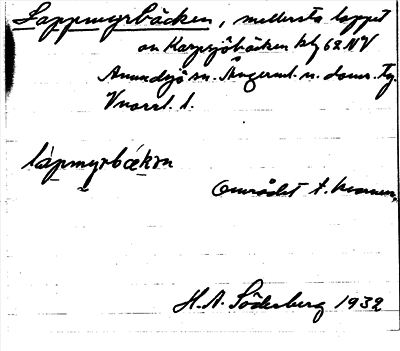 Lappmyrbäcken, mellersta loppet
av Karpsjöbäcken kbl 62 NV
Anundsjö sn. Ångerml. n. doms. tg.
Vnorrl. l.
làpmyrbækɛn
Området t.
H.A. Söderberg 1932